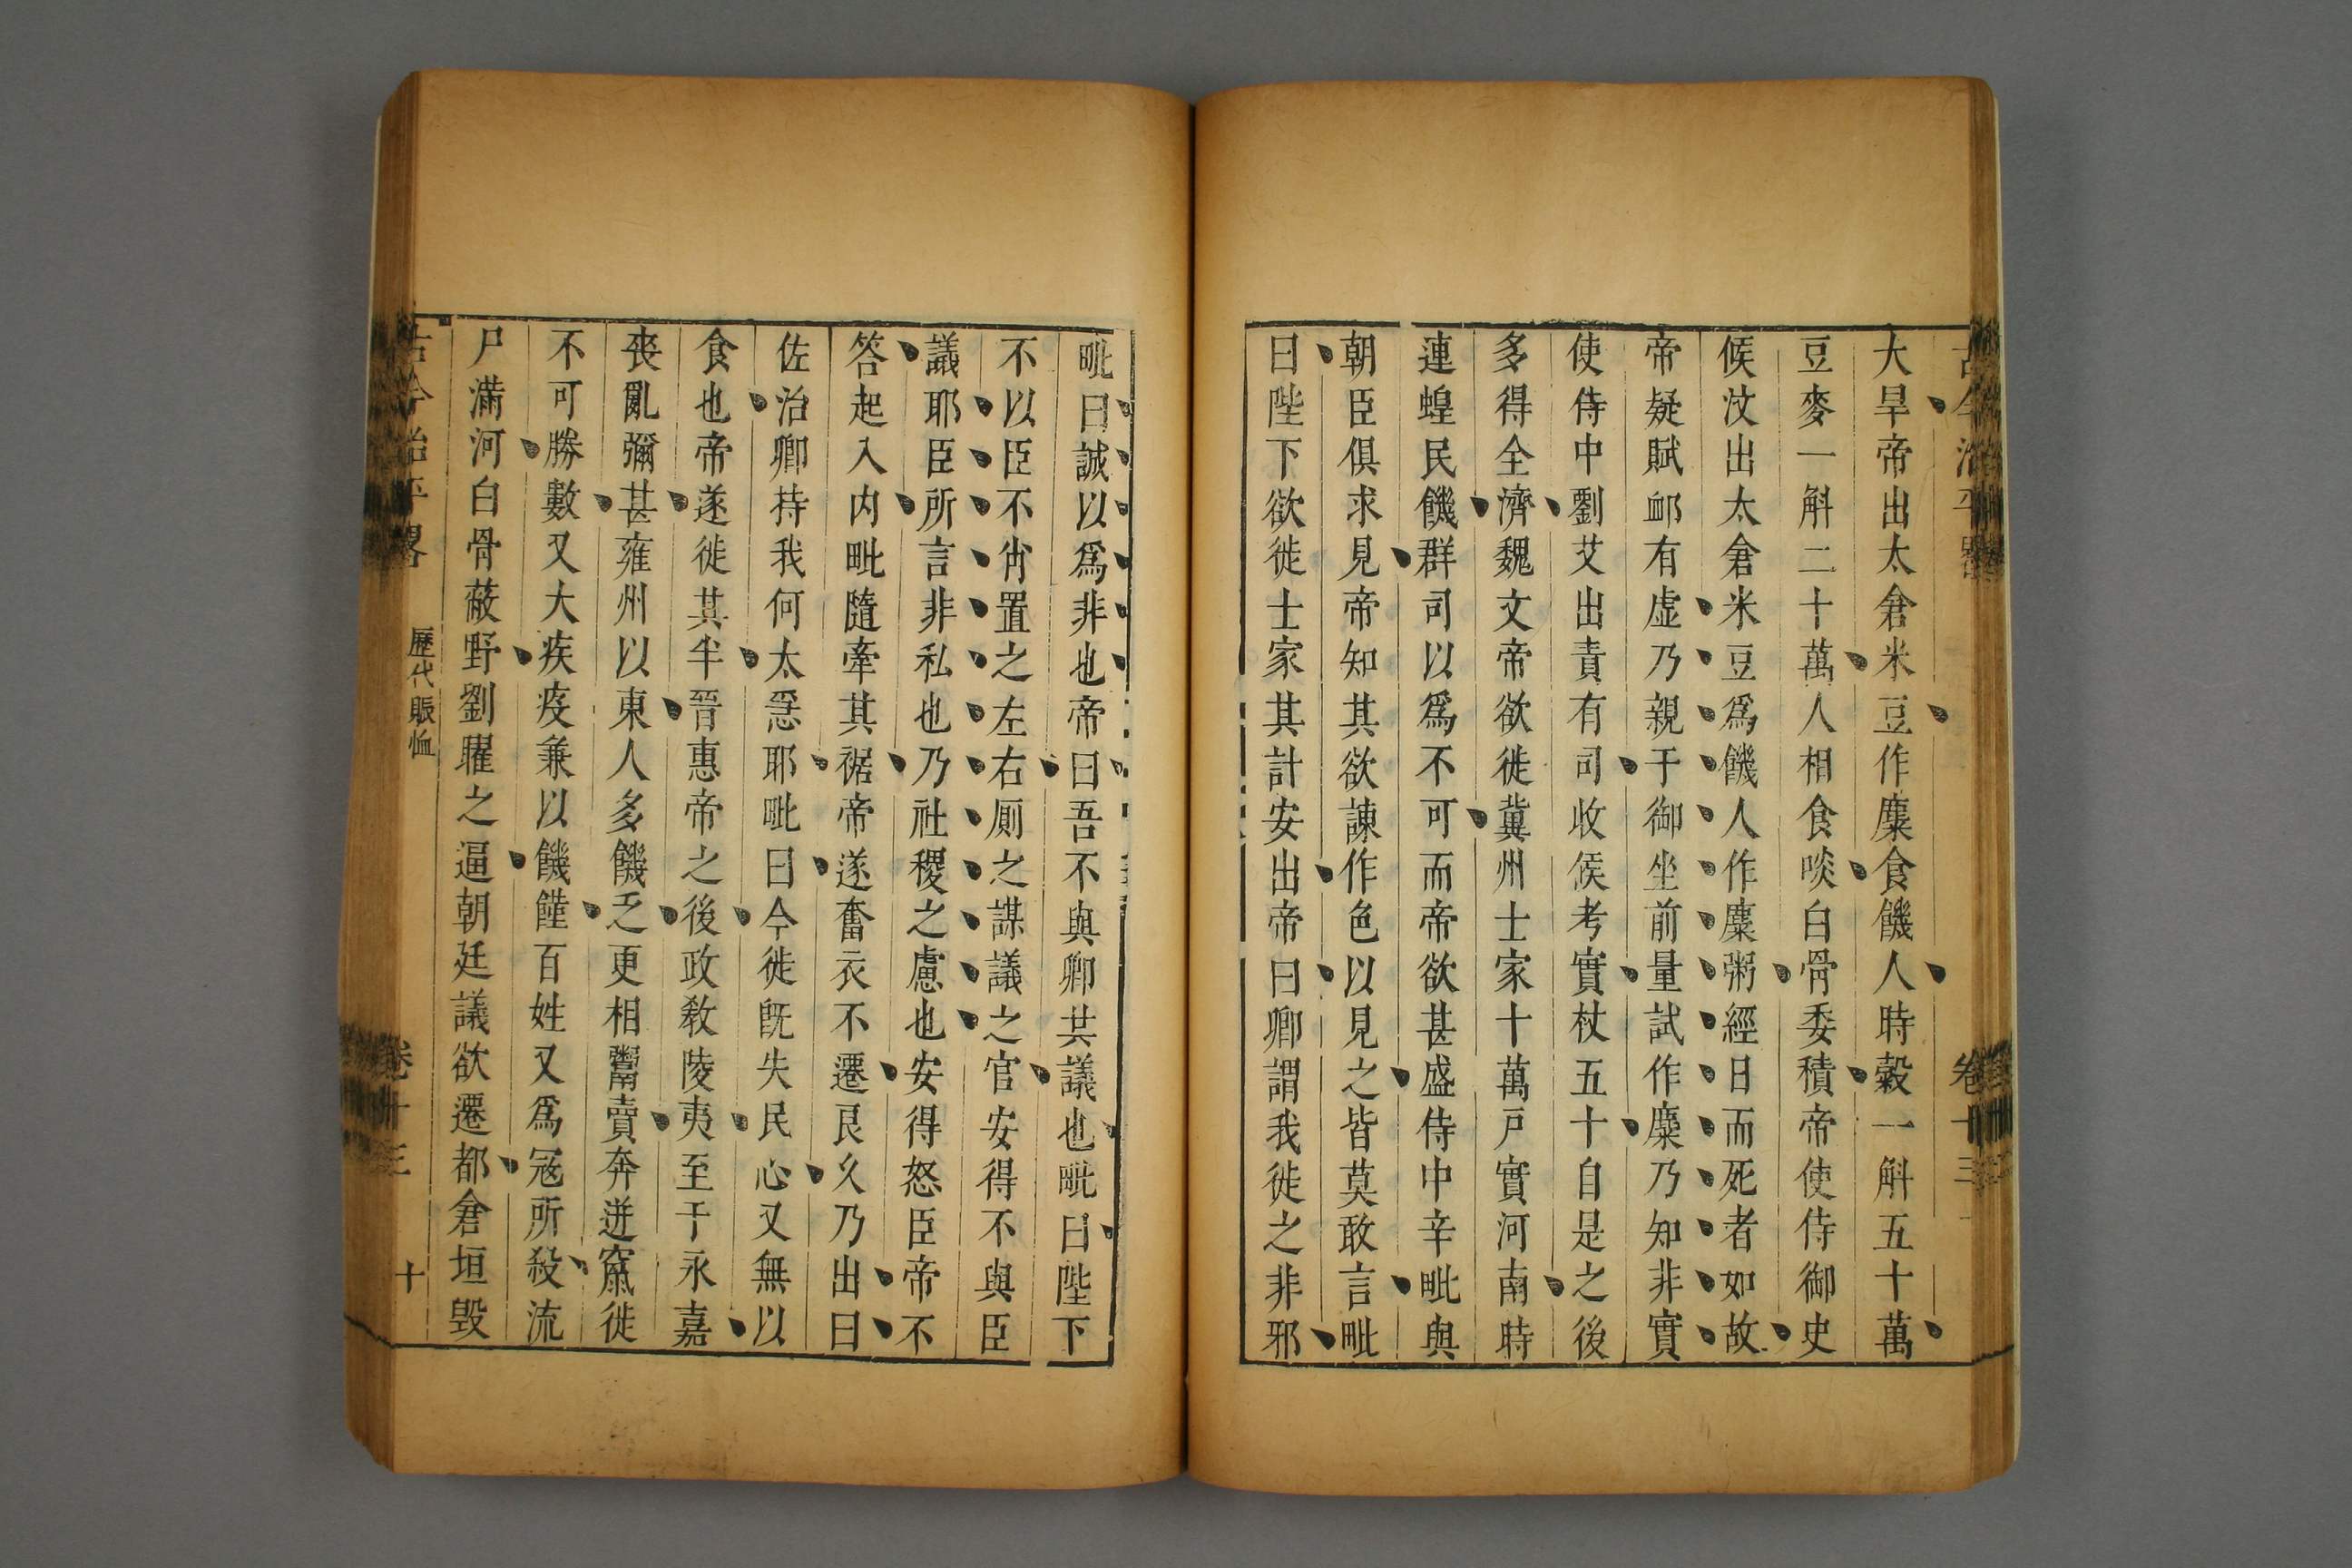 大旱帝出太倉米豆作糜食饑人時穀一斛五十萬
豆麥一斛二十萬人相食啖白骨委積帝使侍御史
侯汶出太倉米豆爲饑人作糜粥經日而死者如故
帝疑賦卹有虛乃親于御坐前量試作糜乃知非實
使侍中劉艾出責有司收侯考實杖五十自是之後
多得全濟魏文帝欲徙冀州士家十萬戸實河南時
連蝗民饑群司以爲不可而帝欲甚盛侍中辛毗與
朝臣俱求見帝知其欲諫作色以見之皆莫敢言毗
曰陛下欲徙士家其計安出帝曰卿謂我徙之非邪
毗曰誠以爲非也帝曰吾不與卿共議也毗曰陛下
不以臣不肖置之左右厠之謀議之官安得不與臣
議耶臣所言非私也乃社稷之慮也安得怒臣帝不
答起入内毗隨牽其裾帝遂奮衣不還良久乃出曰
佐治卿持我何太急耶毗曰今徙既失民心又無以
食也帝遂徙其半晉惠帝之後政教陵夷至于永嘉
喪亂彌甚雍州以東人多饑乏更相鬻賣奔迸竄徙
不可勝數又大疾疫兼以饑饉百姓又爲冦所殺流
尸滿河白骨蔽野劉曜之逼朝廷議欲遷都倉垣毁
古今治平畧 歷代賑恤 卷十三 十